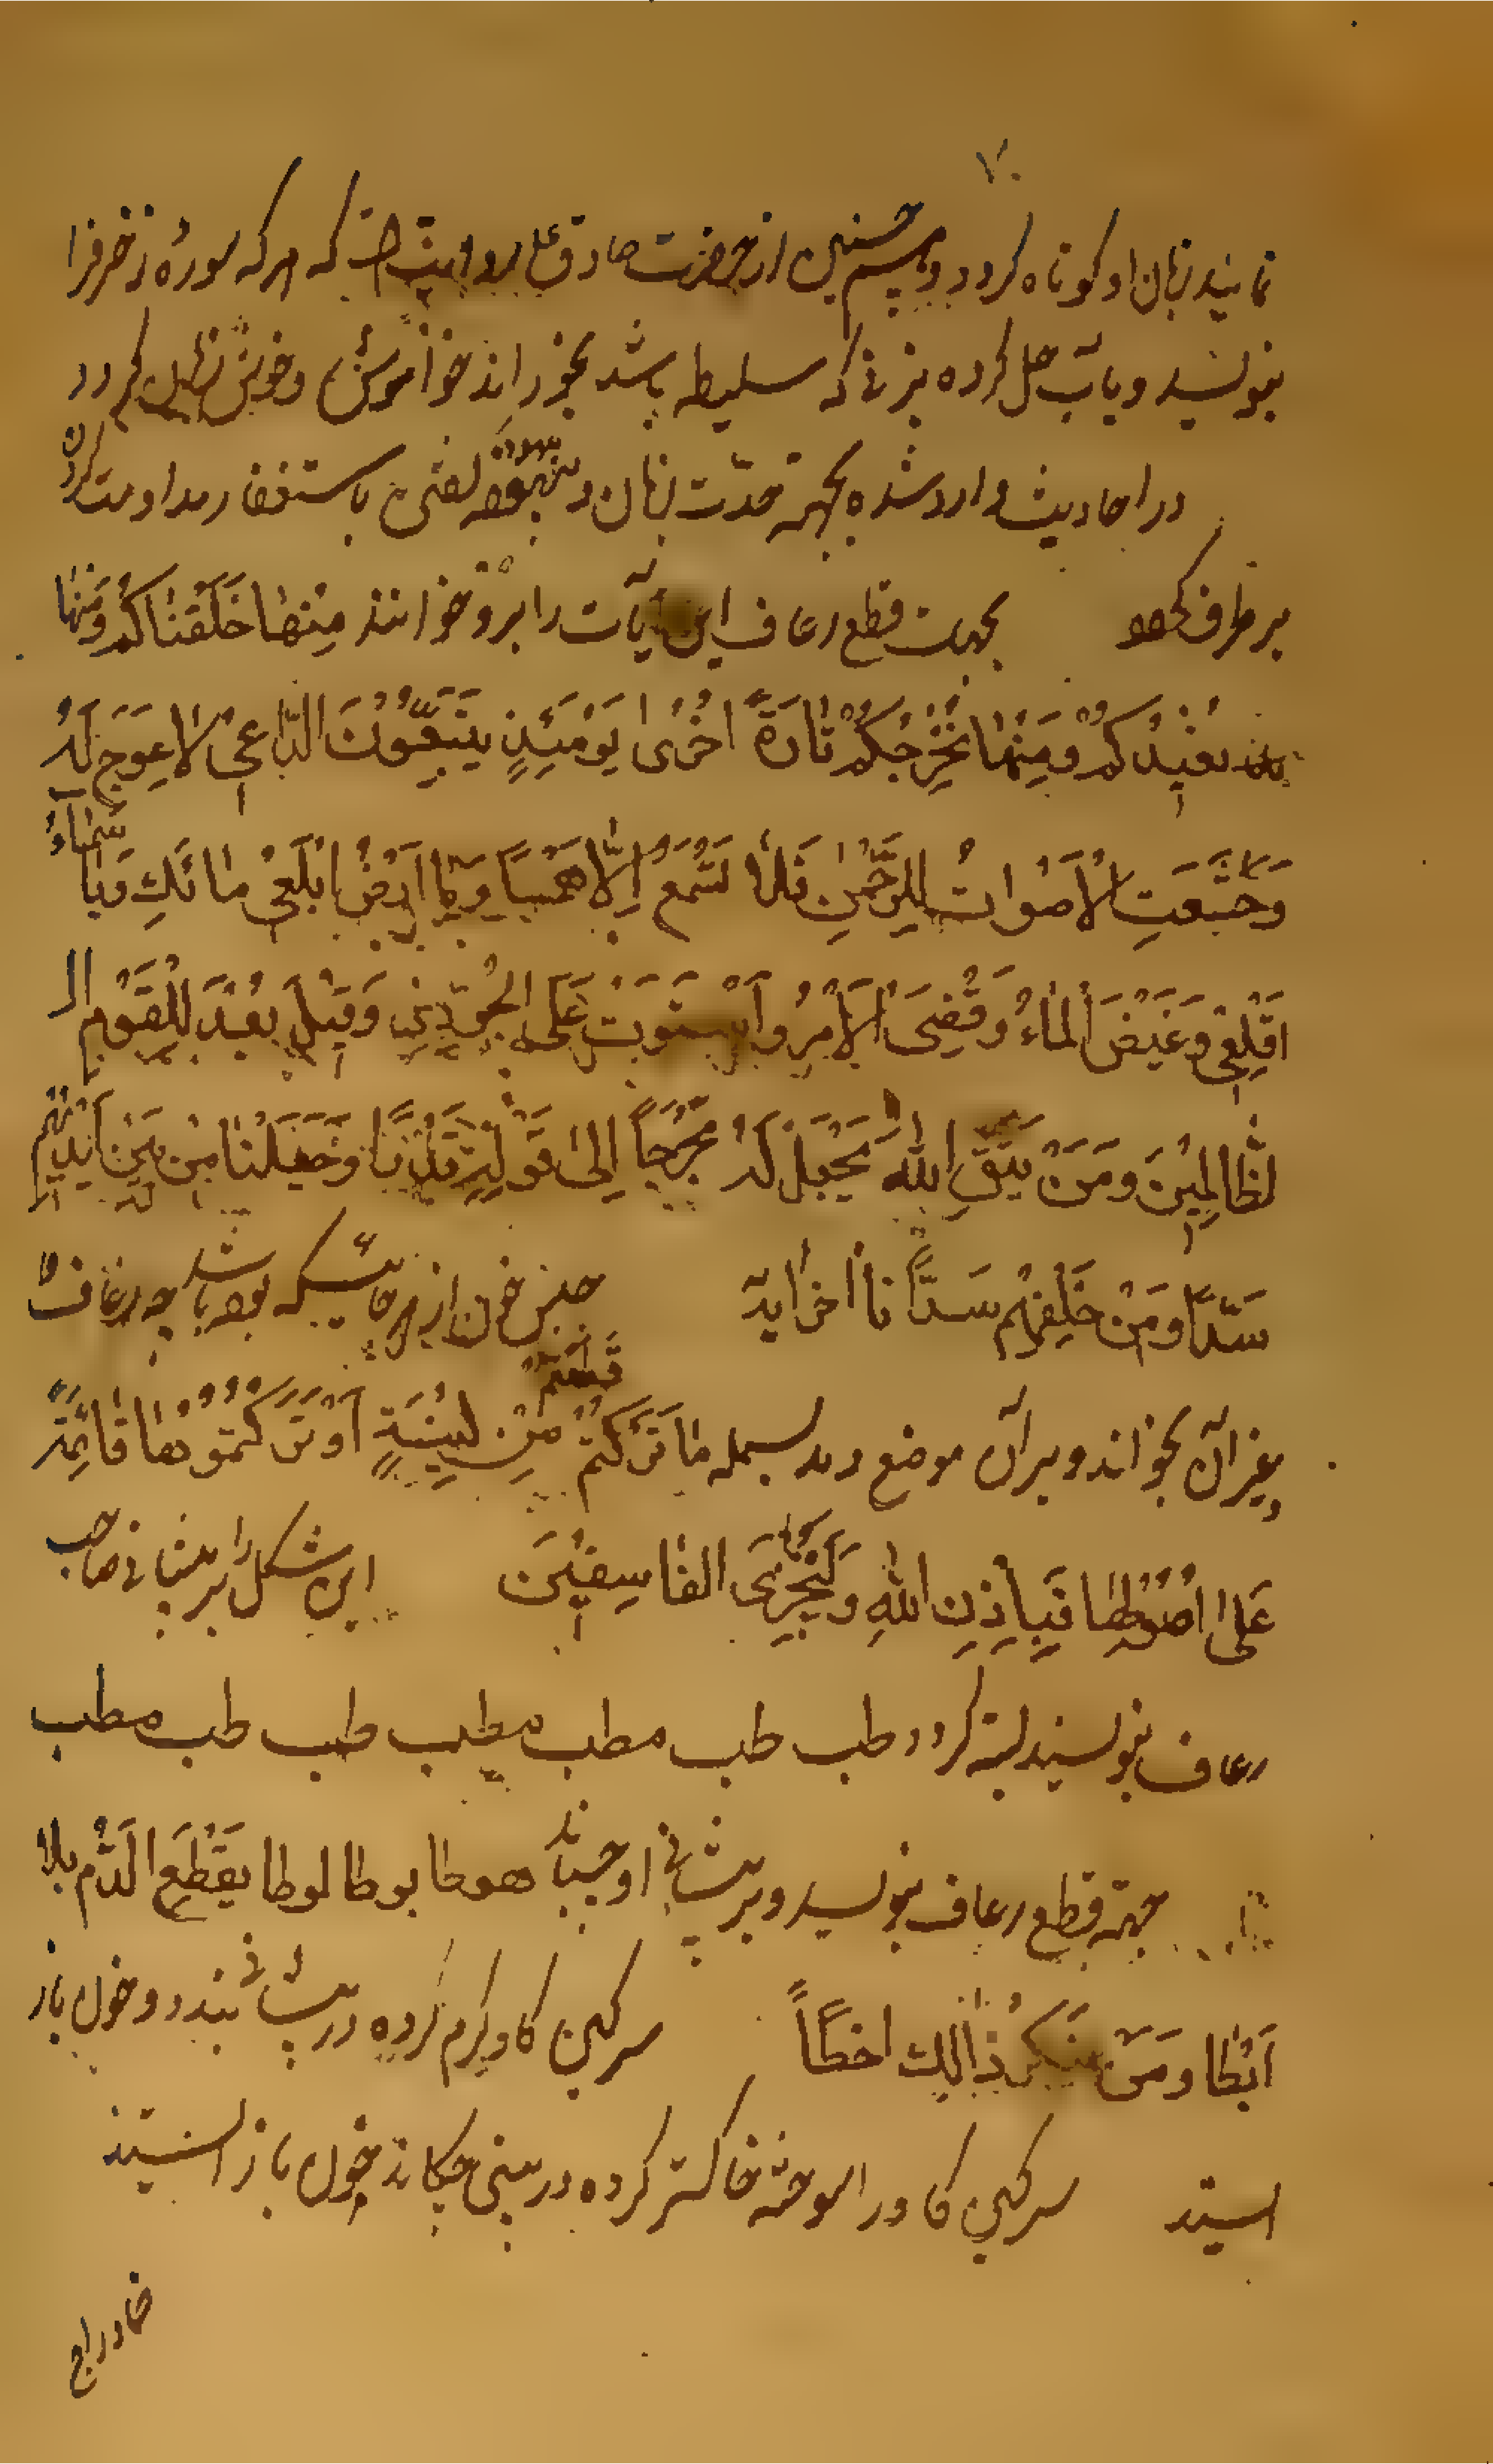 ۷۰
نمایند زبان او کوتاه کردد و همچنین از حضرت صادق علیه روایتست که هر که سوره زخرفرا
بنویسد و بآب حل کرده بزنی که سلیطه باشد بخوراند خوآموش و خوش کردد
در احادیث وارد شده بجهة حدّت زبان و باستغفار مداومت کردن
برطرف کند بجهت قطع رعاف این آیات را برو خوانند مِنْهٰا خَلَقْنٰاکُمْ وَمِنْهٰا
نُعٖیْدُکُمْ وَمِنْهٰا نُخْرِجُکُمْ تٰارَةً اُخْرٰی یَوْمَئِذٍ یَتَّبِعُوْنَ الدّٰاعِیَ لاٰعِوَجَ لَهُ
وَخَشَعَتِ الْاَصْوٰاتُ لِلرَّحْمٰنِ فَلاٰ تَسْمَعُ اِلّٰا هَمْسًا وَیٰا اَرْضُ ابْلَعٖیْ مٰائَكِ وَیٰا سَمٰآءُ
اَقْلِعٖیْ وَغٖیْضَ الْمٰاءُ وَقُضِیَ الْاَمْرُ وَاسْتَوَتْ عَلَی الْجُوْدِیِّ وَقٖیْلَ بُعْدًا لِلْقَوْمِ ال
لظّٰالِمٖیْنَ وَمَنْ یَتَّقِ اللّٰهَ یَجْعَلْ لَهُ مَخْرَجًا اِلٰی قَوْلِهٖ قَدْرًا وَجَعَلْنٰا مِنْ بَیْنِ اَیْدٖیْهِمْ
سَدّاً وَمِنْ خَلْفِهِمْ سَدًّا تا آخر آیه حبس خون از هر جائیکه بوده باشد چه رعاف و
بغیر آن بخواند و بر آن موضع دمد بسمله مٰا قَطَعْتُمْ مِنْ لٖیْنَةٍ اَوْ تَرَکْتُمُوْهٰا قٰائِمَةً
عَلٰی اُصُوْلِهٰا فَبِاِذْنِ اللّٰهِ وَلِیُخْزِیَ الْفٰاسِقٖیْنَ این شکل را بر پیشانی صاحب
رعاف بنویسند بسته کردد طب طب مطب مطب طب طب مطب
جهة قطع رعاف بنویسد و بر پیشانی او چسباند هوطا بوطا لوطا یَقْطَعَ الدَّم بلا
اَبْطا وَمَنْ یُنْکِرْ ذٰالِكَ اخطاً سرکین کاو کرم کرده در پیشانی بندد و خون باز
ایستد سرکین کاو را سوخته خاکستر کرده در بینی چکاند خون باز ایستد